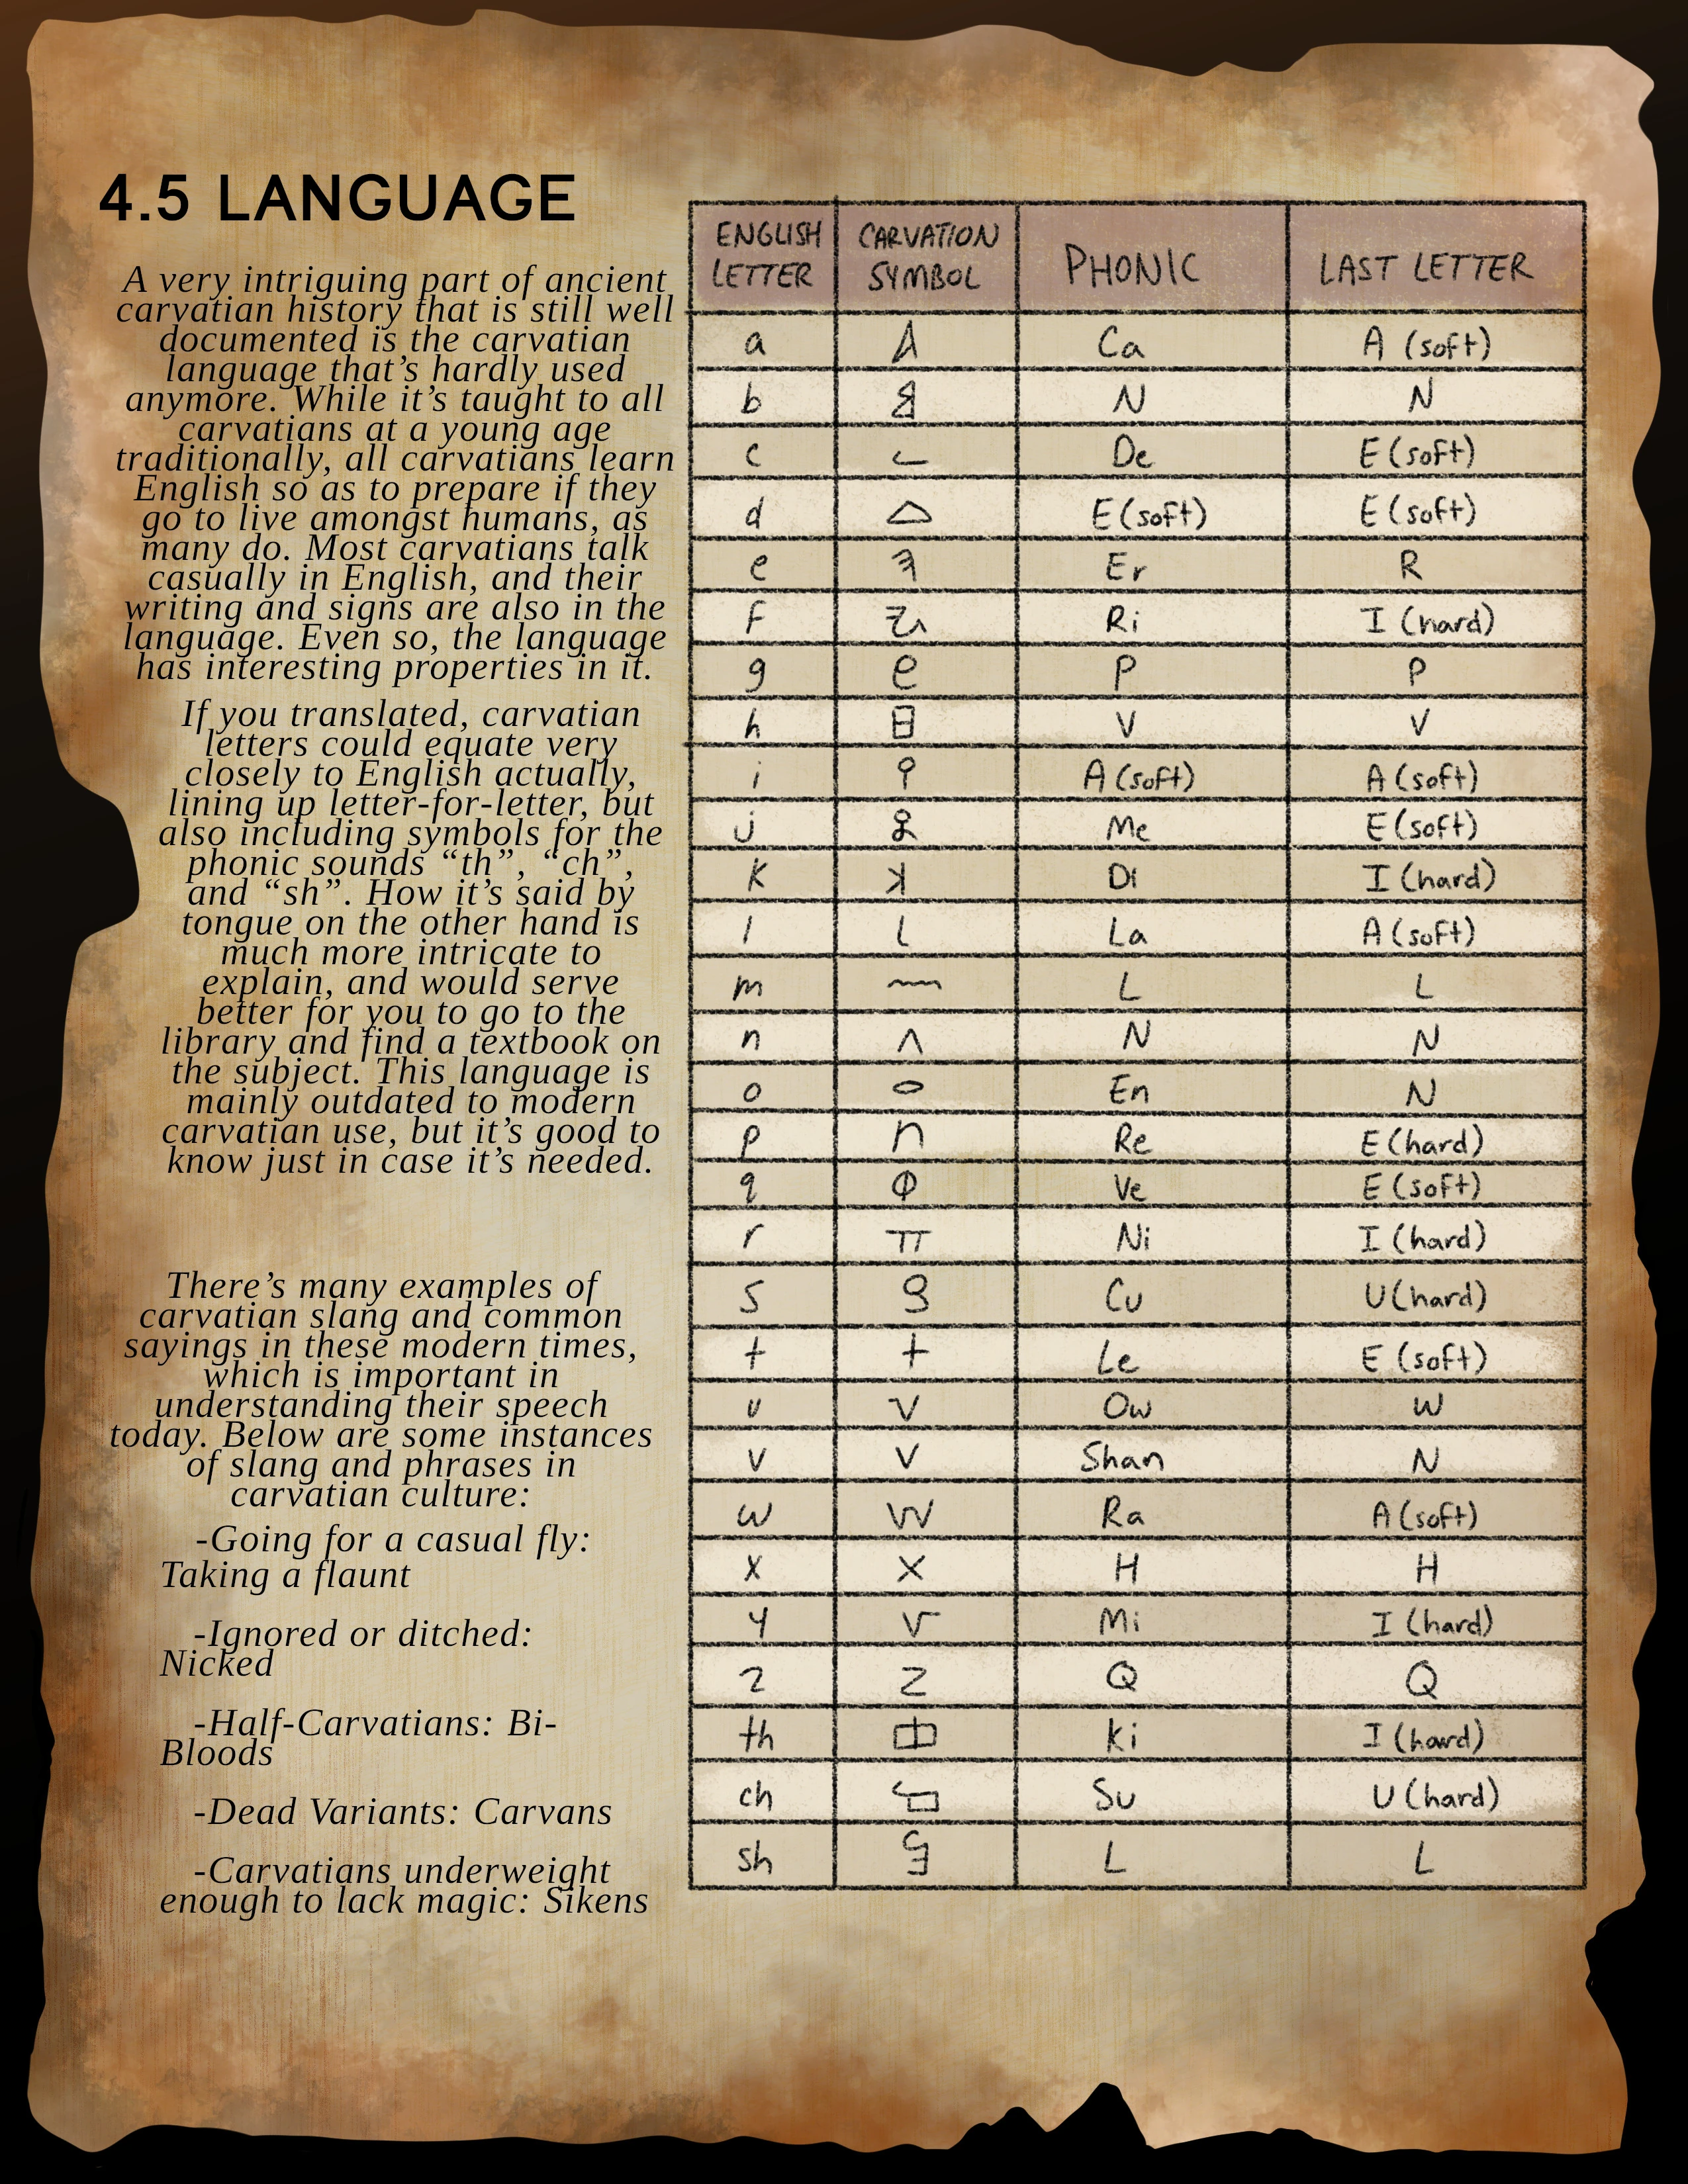 4.5 LANGUAGE
A very intriguing part of ancient
carvatian history that is still well
documented is the carvatian
language that’s hardly used
anymore. While it’s taught to all
carvatians at a young age
traditionally, all carvatians learn
English so as to prepare if they
go to live amongst humans, as
many do. Most carvatians talk
casually in English, and their
writing and signs are also in the
language. Even so, the language
has interesting properties in it.
If you translated, carvatian
letters could equate very
closely to English actually,
lining up letter-for-letter, but
also including symbols for the
phonic sounds “th”, “ch”,
and “sh”. How it’s said by
tongue on the other hand is
much more intricate to
explain, and would serve
better for you to go to the
library and find a textbook on
the subject. This language is
mainly outdated to modern
carvatian use, but it’s good to
know just in case it’s needed.
There’s many examples of
carvatian slang and common
sayings in these modern times,
which is important in
understanding their speech
today. Below are some instances
of slang and phrases in
carvatian culture:
-Going for a casual fly:
Taking a flaunt
-Ignored or ditched:
Nicked
-Half-Carvatians: Bi-
Bloods
-Dead Variants: Carvans
-Carvatians underweight
enough to lack magic: Sikens
ENGLISH LETTER CARVATION SYMBOL PHONIC LAST LETTER
a Ca A (soft)
b N N
c De E (soft)
d E (soft) E (soft)
e Er R
f Ri I (hard)
g P P
h V V
i A (soft) A (soft)
j Me E (soft)
k Di I (hard)
l La A (soft)
m L L
n N N
o En N
p Re E (hard)
q Ve E (soft)
r Ni I (hard)
s Cu U (hard)
t Le E (soft)
u Ow W
v Shan N
w Ra A (soft)
x H H
y Mi I (hard)
z Q Q
th Ki I (hard)
ch Su U (hard)
sh L L